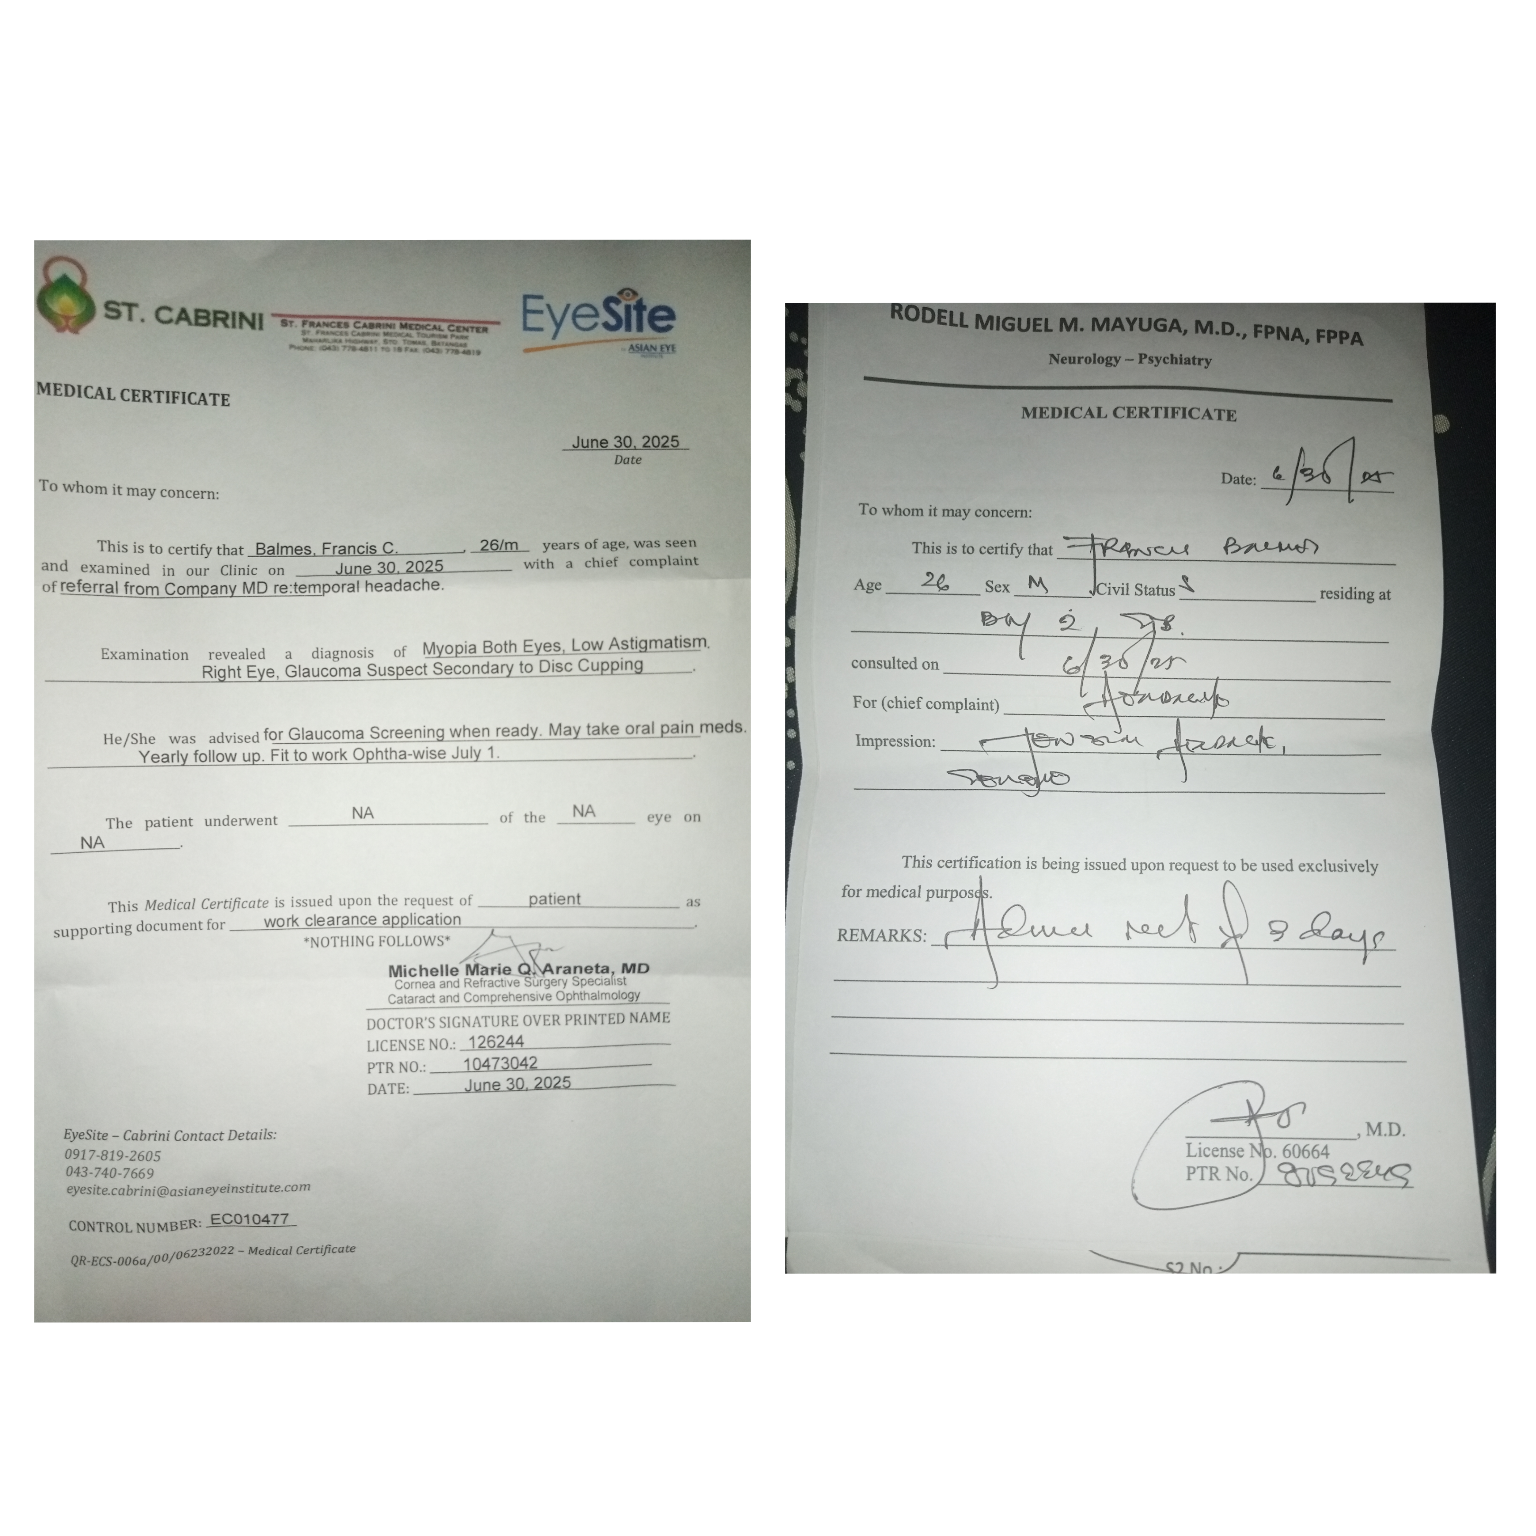 ST. CABRINI
ST. FRANCES CABRINI MEDICAL CENTER
ST. FRANCES CABRINI MEDICAL TOURISM PARK
MAHARLIKA HIGHWAY, STO. TOMAS, BATANGAS
PHONE: (043) 778-4811 TO 18 FAX: (043) 778-4819
EyeSite
ASIAN EYE
MEDICAL CERTIFICATE
June 30, 2025
Date
To whom it may concern:
This is to certify that Balmes, Francis C. , 26/m years of age, was seen
and examined in our Clinic on June 30, 2025 with a chief complaint
of referral from Company MD re:temporal headache.
Examination revealed a diagnosis of Myopia Both Eyes, Low Astigmatism,
Right Eye, Glaucoma Suspect Secondary to Disc Cupping .
He/She was advised for Glaucoma Screening when ready. May take oral pain meds.
Yearly follow up. Fit to work Ophtha-wise July 1. .
The patient underwent NA of the NA eye on
NA .
This Medical Certificate is issued upon the request of patient as
supporting document for work clearance application .
*NOTHING FOLLOWS*
Michelle Marie Q. Araneta, MD
Cornea and Refractive Surgery Specialist
Cataract and Comprehensive Ophthalmology
DOCTOR'S SIGNATURE OVER PRINTED NAME
LICENSE NO.: 126244
PTR NO.: 10473042
DATE: June 30, 2025
EyeSite – Cabrini Contact Details:
0917-819-2605
043-740-7669
eyesite.cabrini@asianeyeinstitute.com
CONTROL NUMBER: EC010477
QR-ECS-006a/00/06232022 – Medical Certificate
RODELL MIGUEL M. MAYUGA, M.D., FPNA, FPPA
Neurology – Psychiatry
MEDICAL CERTIFICATE
Date: 6/30/25
To whom it may concern:
This is to certify that Francis Balmes
Age 26 Sex M Civil Status S residing at
consulted on 6/30/25
For (chief complaint) Headache
Impression: Tension Headache,
This certification is being issued upon request to be used exclusively
for medical purposes.
REMARKS: Advise rest for 3 days
, M.D.
License No. 60664
PTR No.
S2 No.: